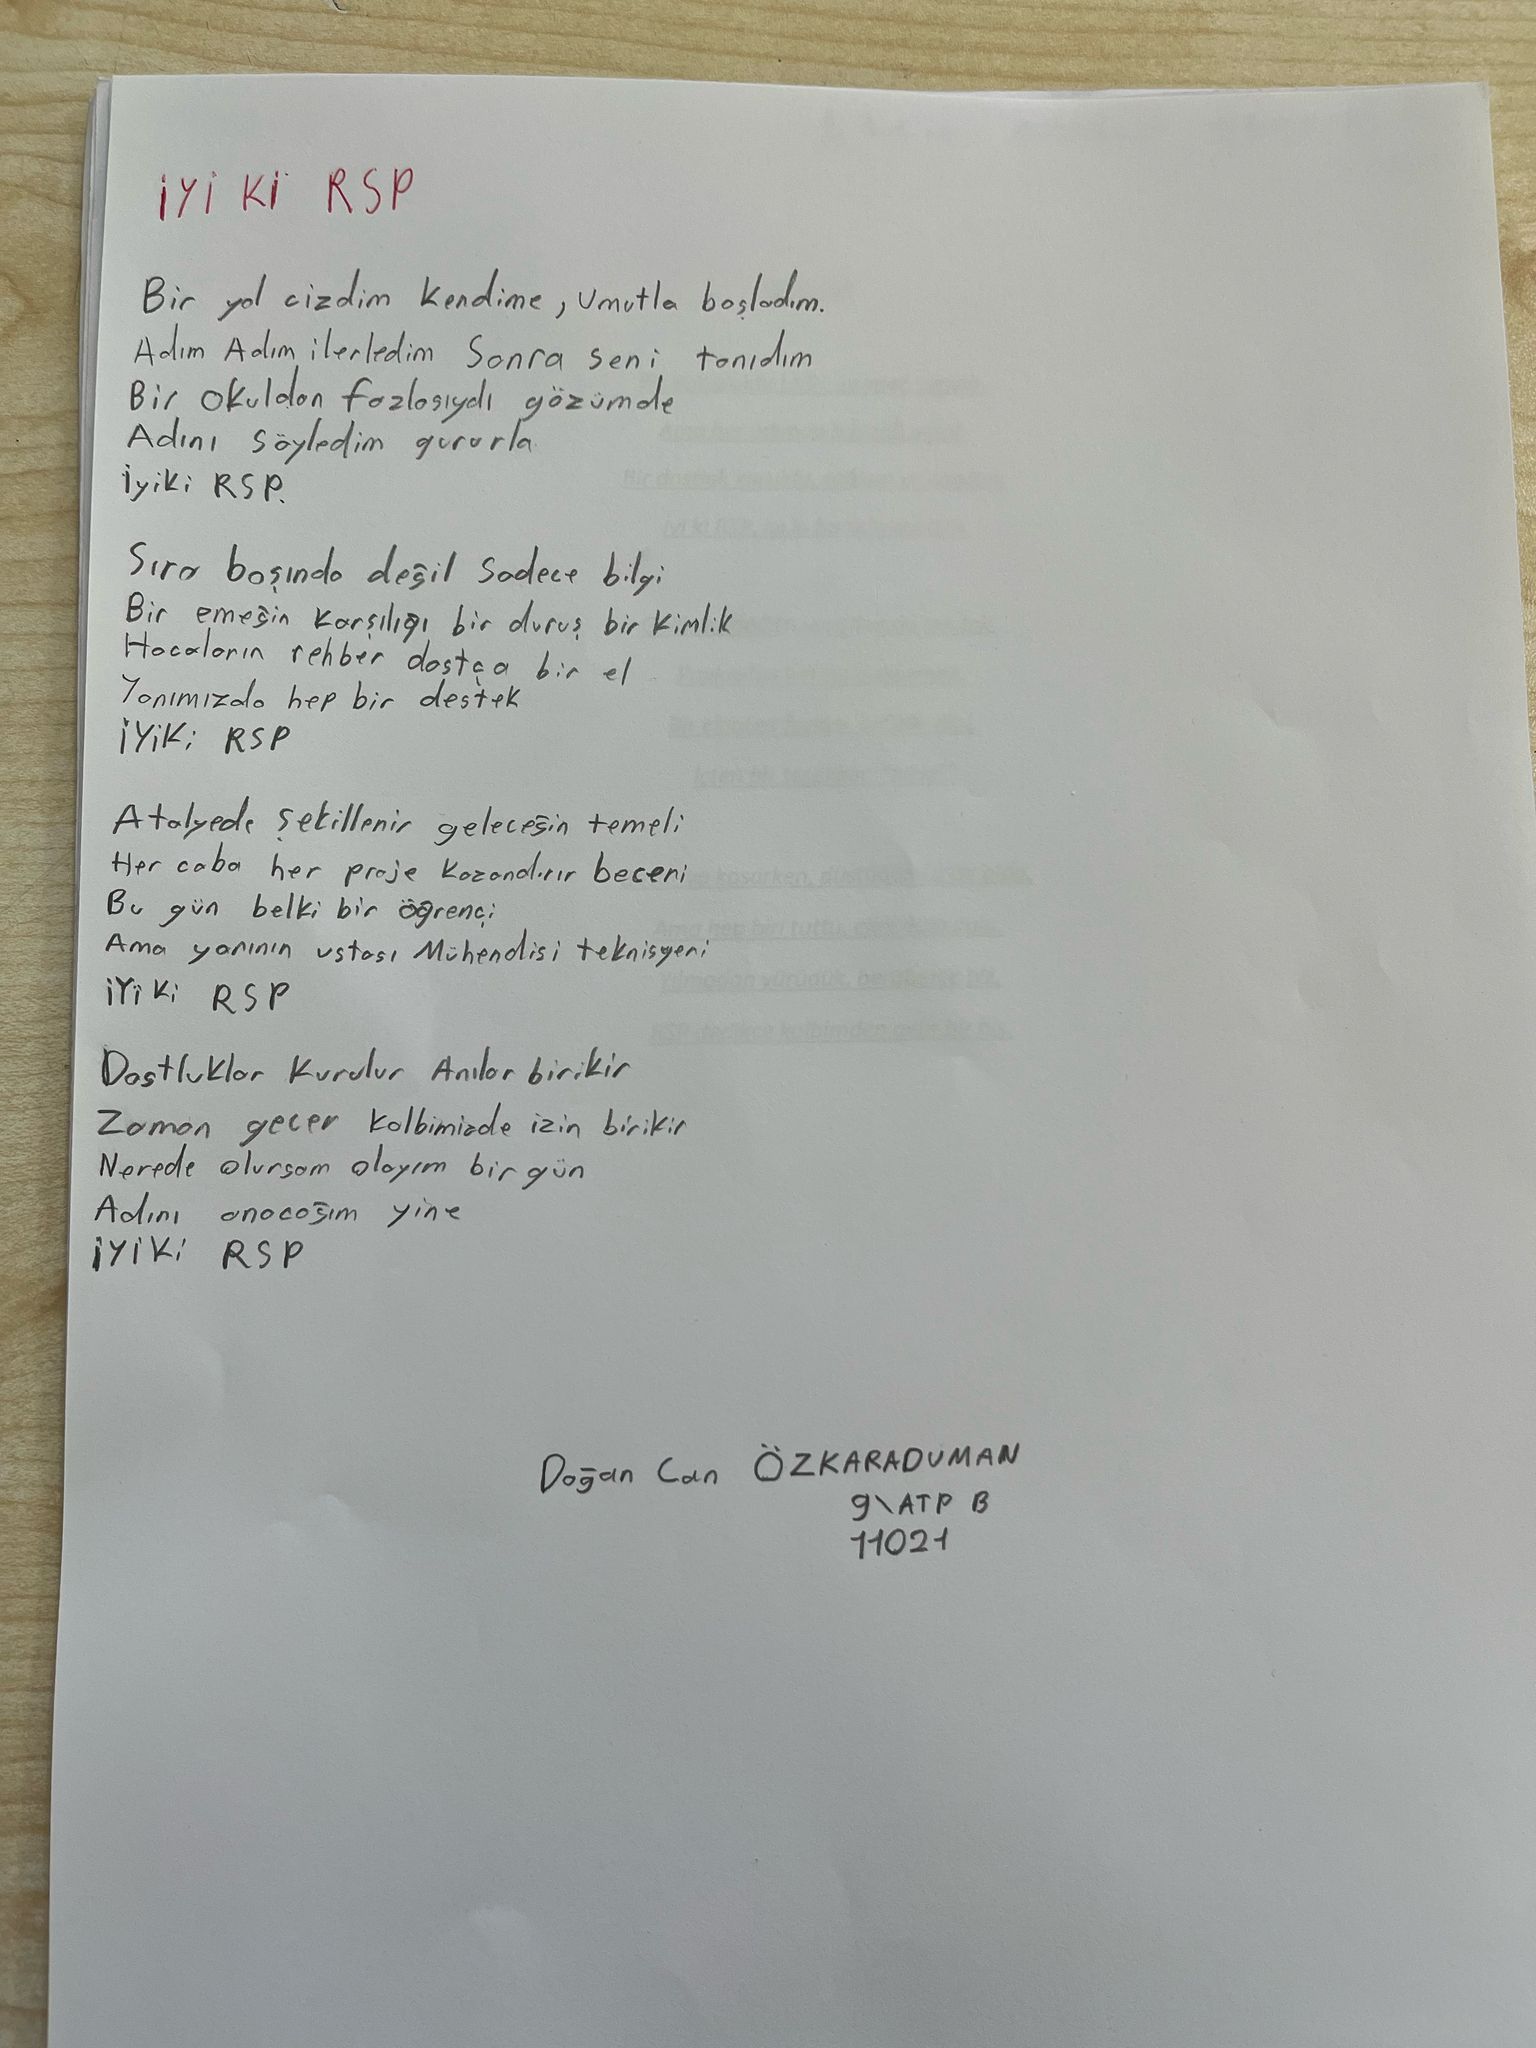 İYİ Kİ RSP
Bir yol cizdim kendime, umutla başladım.
Adım Adım ilerledim Sonra seni tanıdım
Bir okuldan fazlasıydı gözümde
Adını söyledim gururla
İyiki RSP.
Sıra başında değil Sadece bilgi
Bir emeğin karşılığı bir duruş bir kimlik
Hocaların rehber dostça bir el
Yanımızda hep bir destek
İYİKİ RSP
Atalyede şekillenir geleceğin temeli
Her caba her proje kazandırır beceri
Bu gün belki bir öğrençi
Ama yarının ustası Mühendisi teknisyeni
İYİ Kİ RSP
Dostluklar Kurulur Anılar birikir
Zaman geçer kalbimizde izin birikir
Nerede olursam olayım bir gün
Adını anacağım yine
İYİKİ RSP
Doğan Can ÖZKARADUMAN
9\ATP B
11021